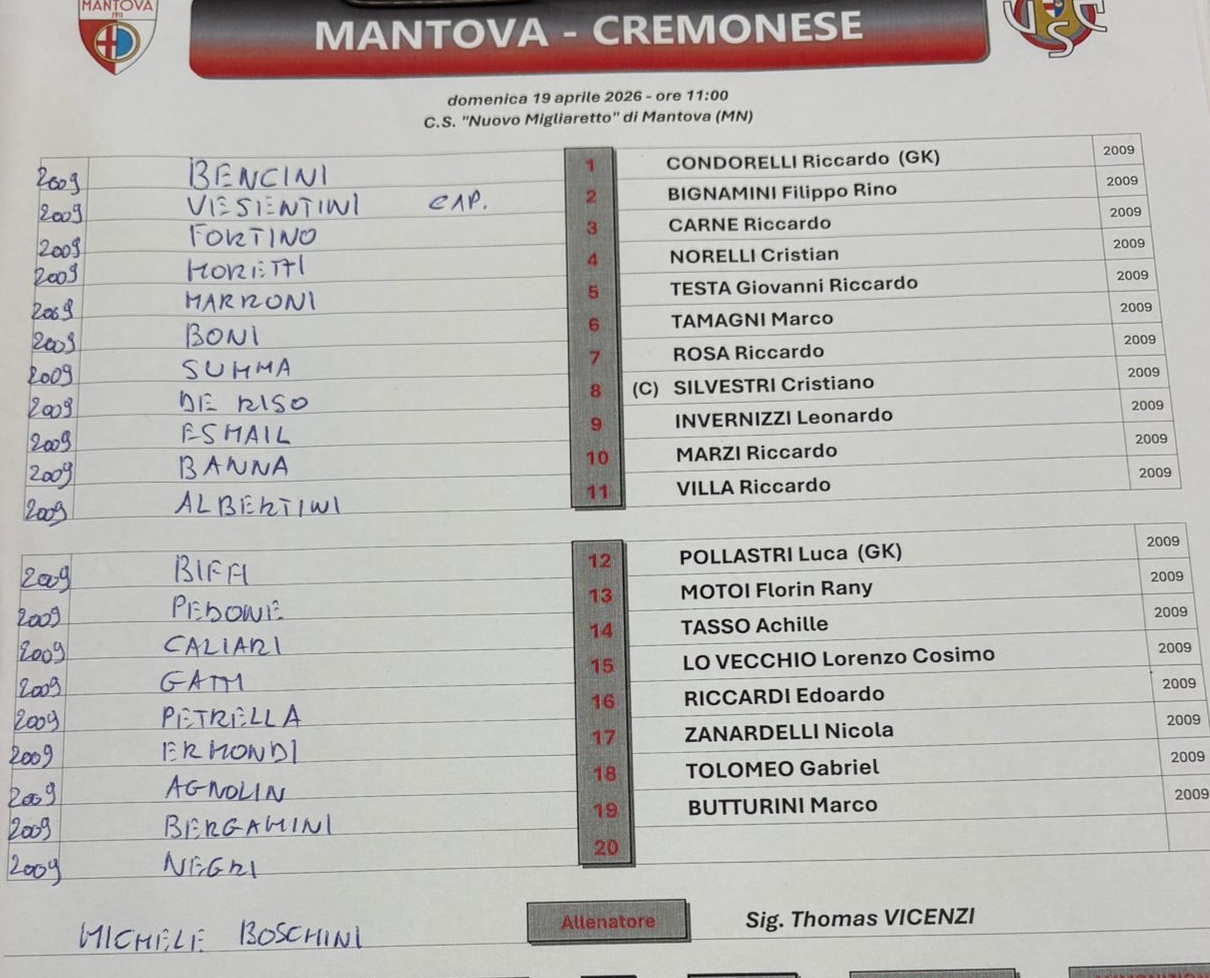 MANTOVA
1911
MANTOVA - CREMONESE
domenica 19 aprile 2026 - ore 11:00
C.S. "Nuovo Migliaretto" di Mantova (MN)
2009 BENCINI 1 CONDORELLI Riccardo (GK) 2009
2009 VIESIENTINI CAP. 2 BIGNAMINI Filippo Rino 2009
2009 FORTINO 3 CARNE Riccardo 2009
2009 MORETTI 4 NORELLI Cristian 2009
2009 MARRONI 5 TESTA Giovanni Riccardo 2009
2009 BONI 6 TAMAGNI Marco 2009
2009 SUMMA 7 ROSA Riccardo 2009
2009 DE RISO 8 (C) SILVESTRI Cristiano 2009
2009 ESMAIL 9 INVERNIZZI Leonardo 2009
2009 BANNA 10 MARZI Riccardo 2009
2009 ALBERTINI 11 VILLA Riccardo 2009
2009 BIFFI 12 POLLASTRI Luca (GK) 2009
2009 PEDONE 13 MOTOI Florin Rany 2009
2009 CALIARI 14 TASSO Achille 2009
2009 GATTI 15 LO VECCHIO Lorenzo Cosimo 2009
2009 PETRELLA 16 RICCARDI Edoardo 2009
2009 ERMONDI 17 ZANARDELLI Nicola 2009
2009 AGNOLIN 18 TOLOMEO Gabriel 2009
2009 BERGAMINI 19 BUTTURINI Marco 2009
2009 NEGRI 20
MICHELE BOSCHINI Allenatore Sig. Thomas VICENZI